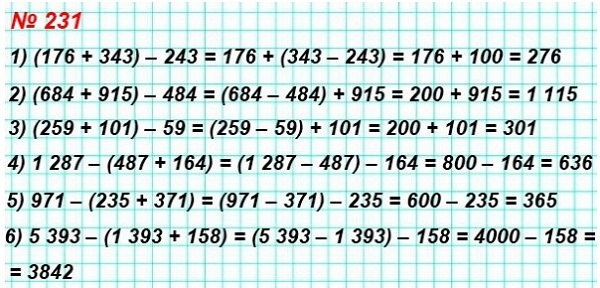 № 231
1) (176 + 343) – 243 = 176 + (343 – 243) = 176 + 100 = 276
2) (684 + 915) – 484 = (684 – 484) + 915 = 200 + 915 = 1 115
3) (259 + 101) – 59 = (259 – 59) + 101 = 200 + 101 = 301
4) 1 287 – (487 + 164) = (1 287 – 487) – 164 = 800 – 164 = 636
5) 971 – (235 + 371) = (971 – 371) – 235 = 600 – 235 = 365
6) 5 393 – (1 393 + 158) = (5 393 – 1 393) – 158 = 4000 – 158 =
= 3842